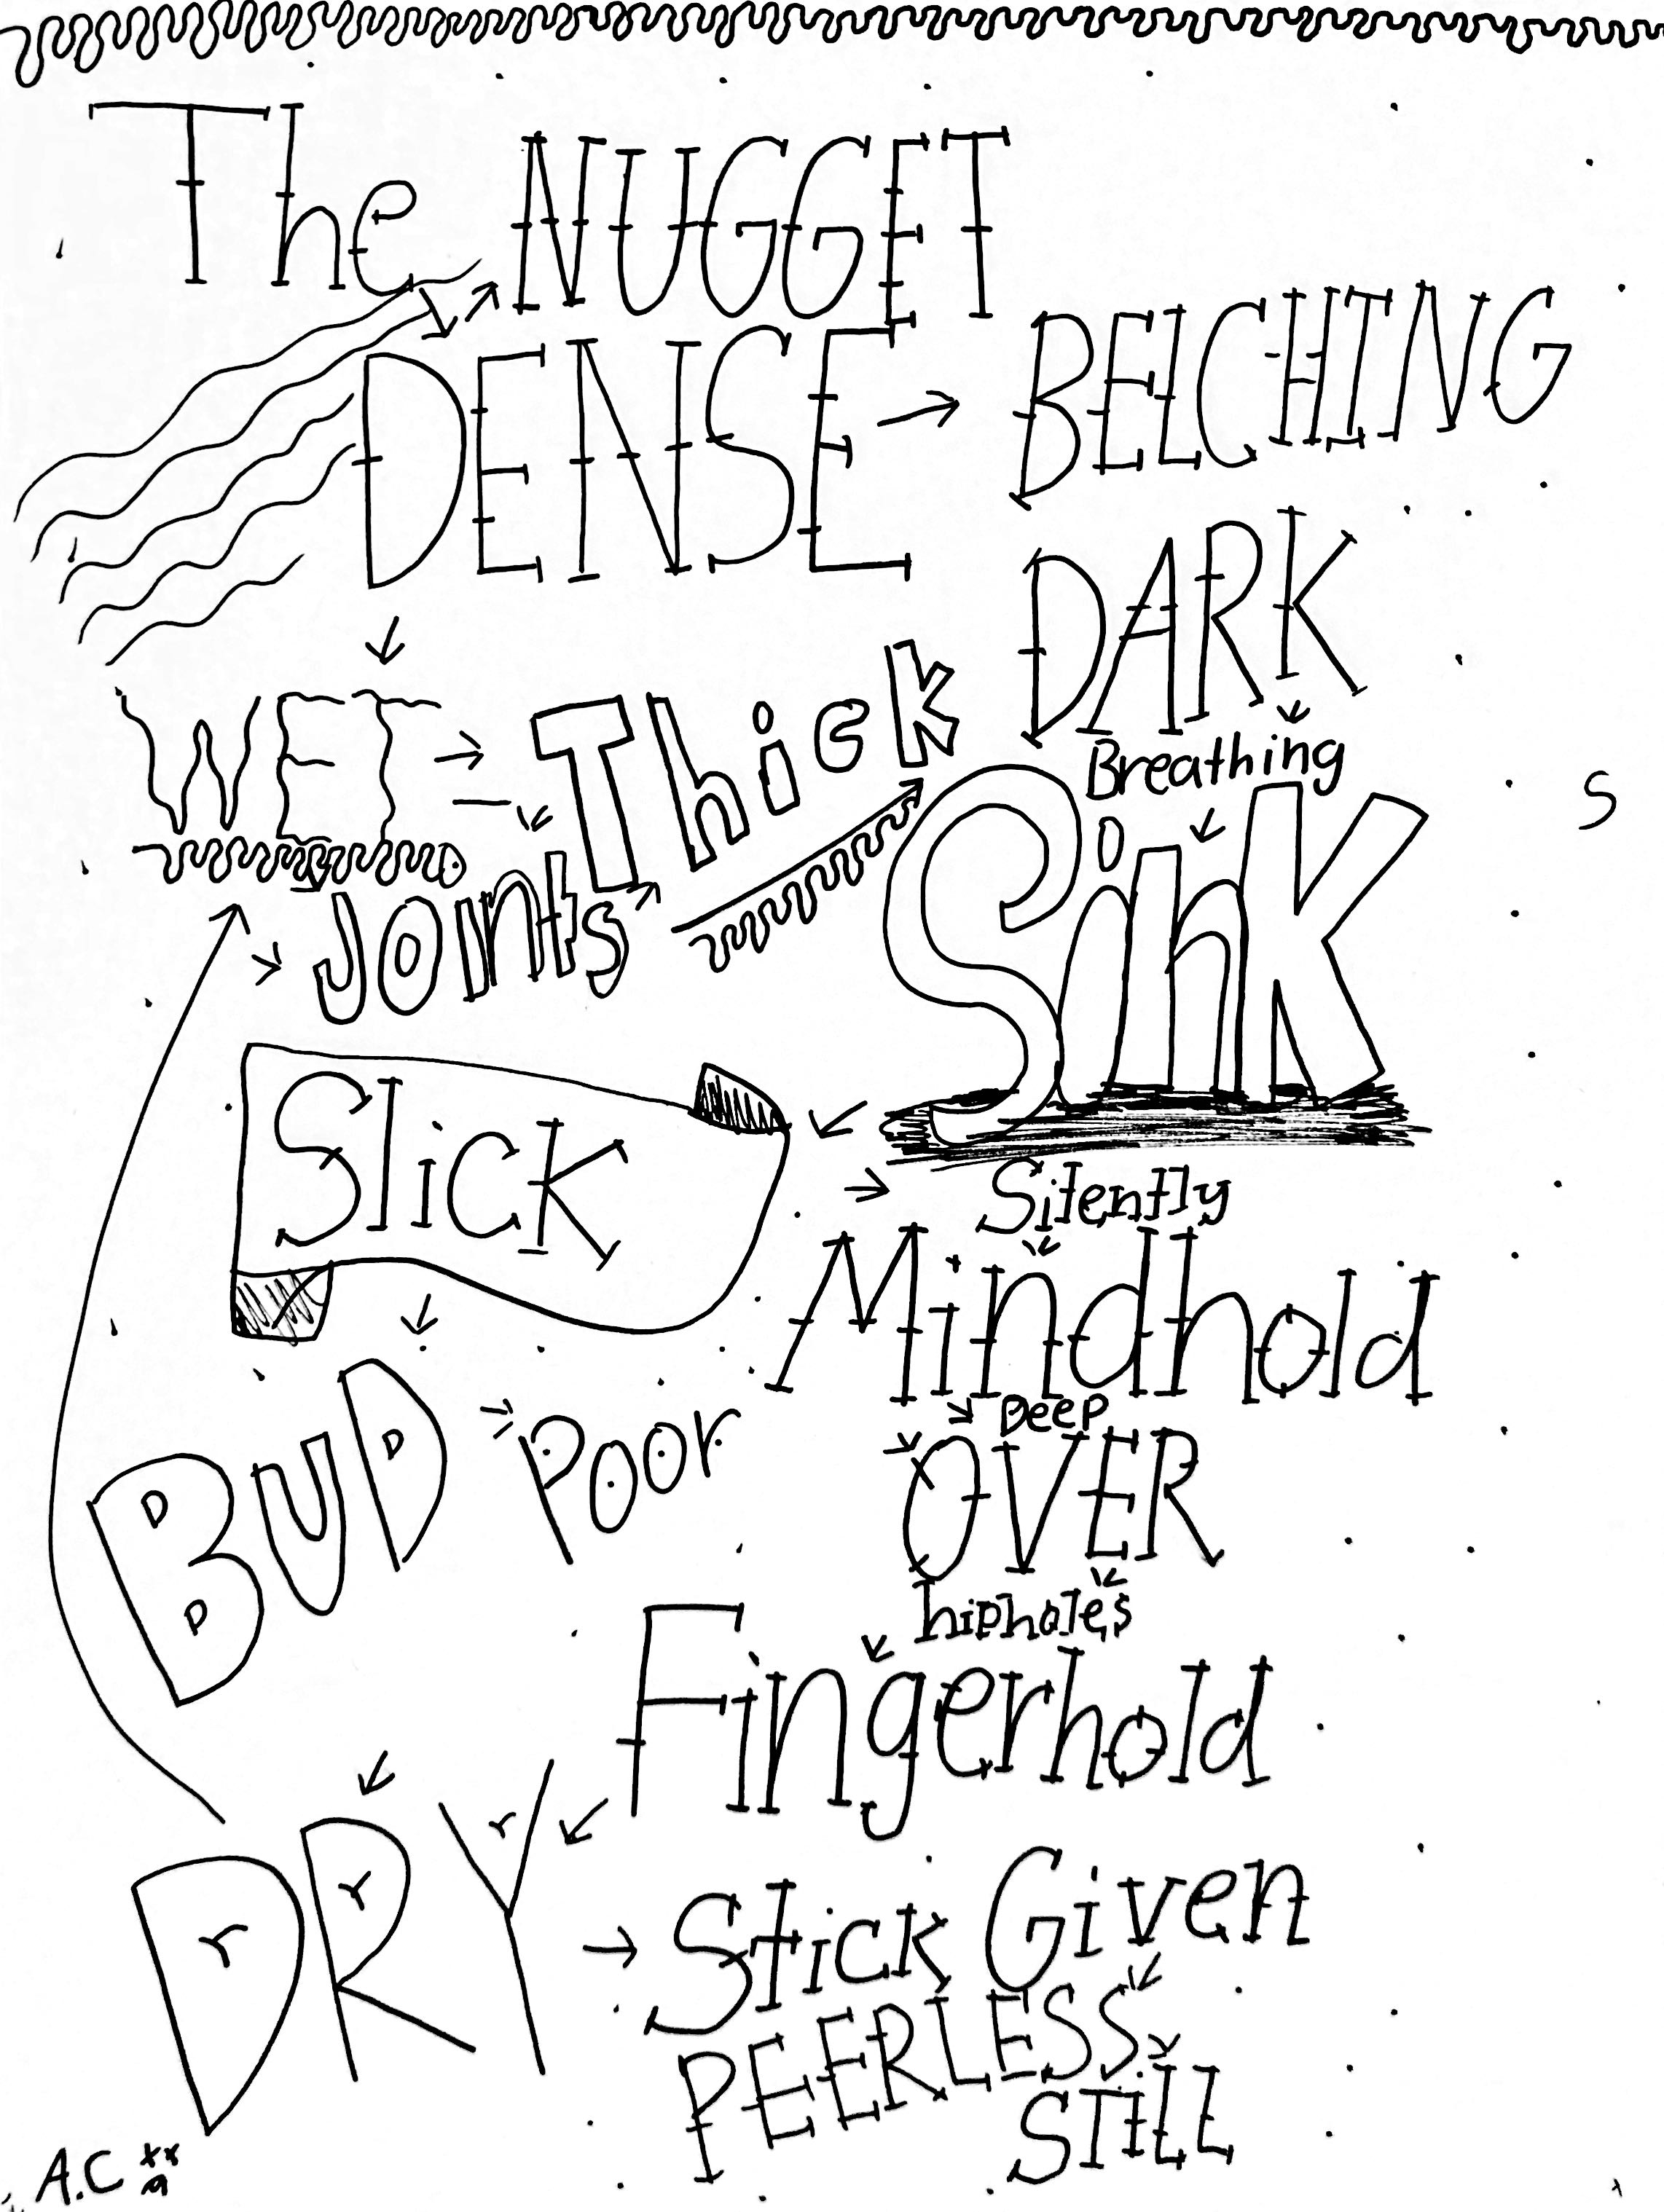 The NUGGET
DENSE BELCHING
DARK
WET Thick
Breathing
Joints
Sink
S
Slick
Silently
Mindhold
DEEP
BUD POOR
OVER
hipholes
Fingerhold
DRY
Stick Given
PEERLESS
STiLL
A.C xx